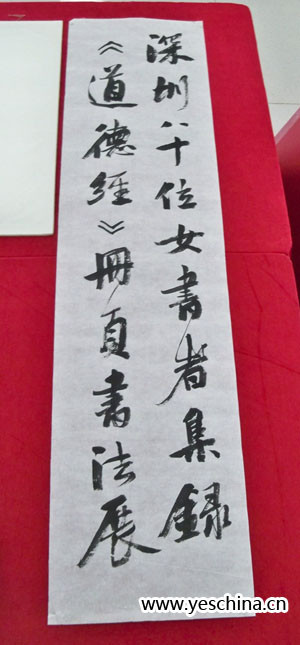 深圳八十位女書者集録
《道德經》冊頁書法展
www.yeschina.cn